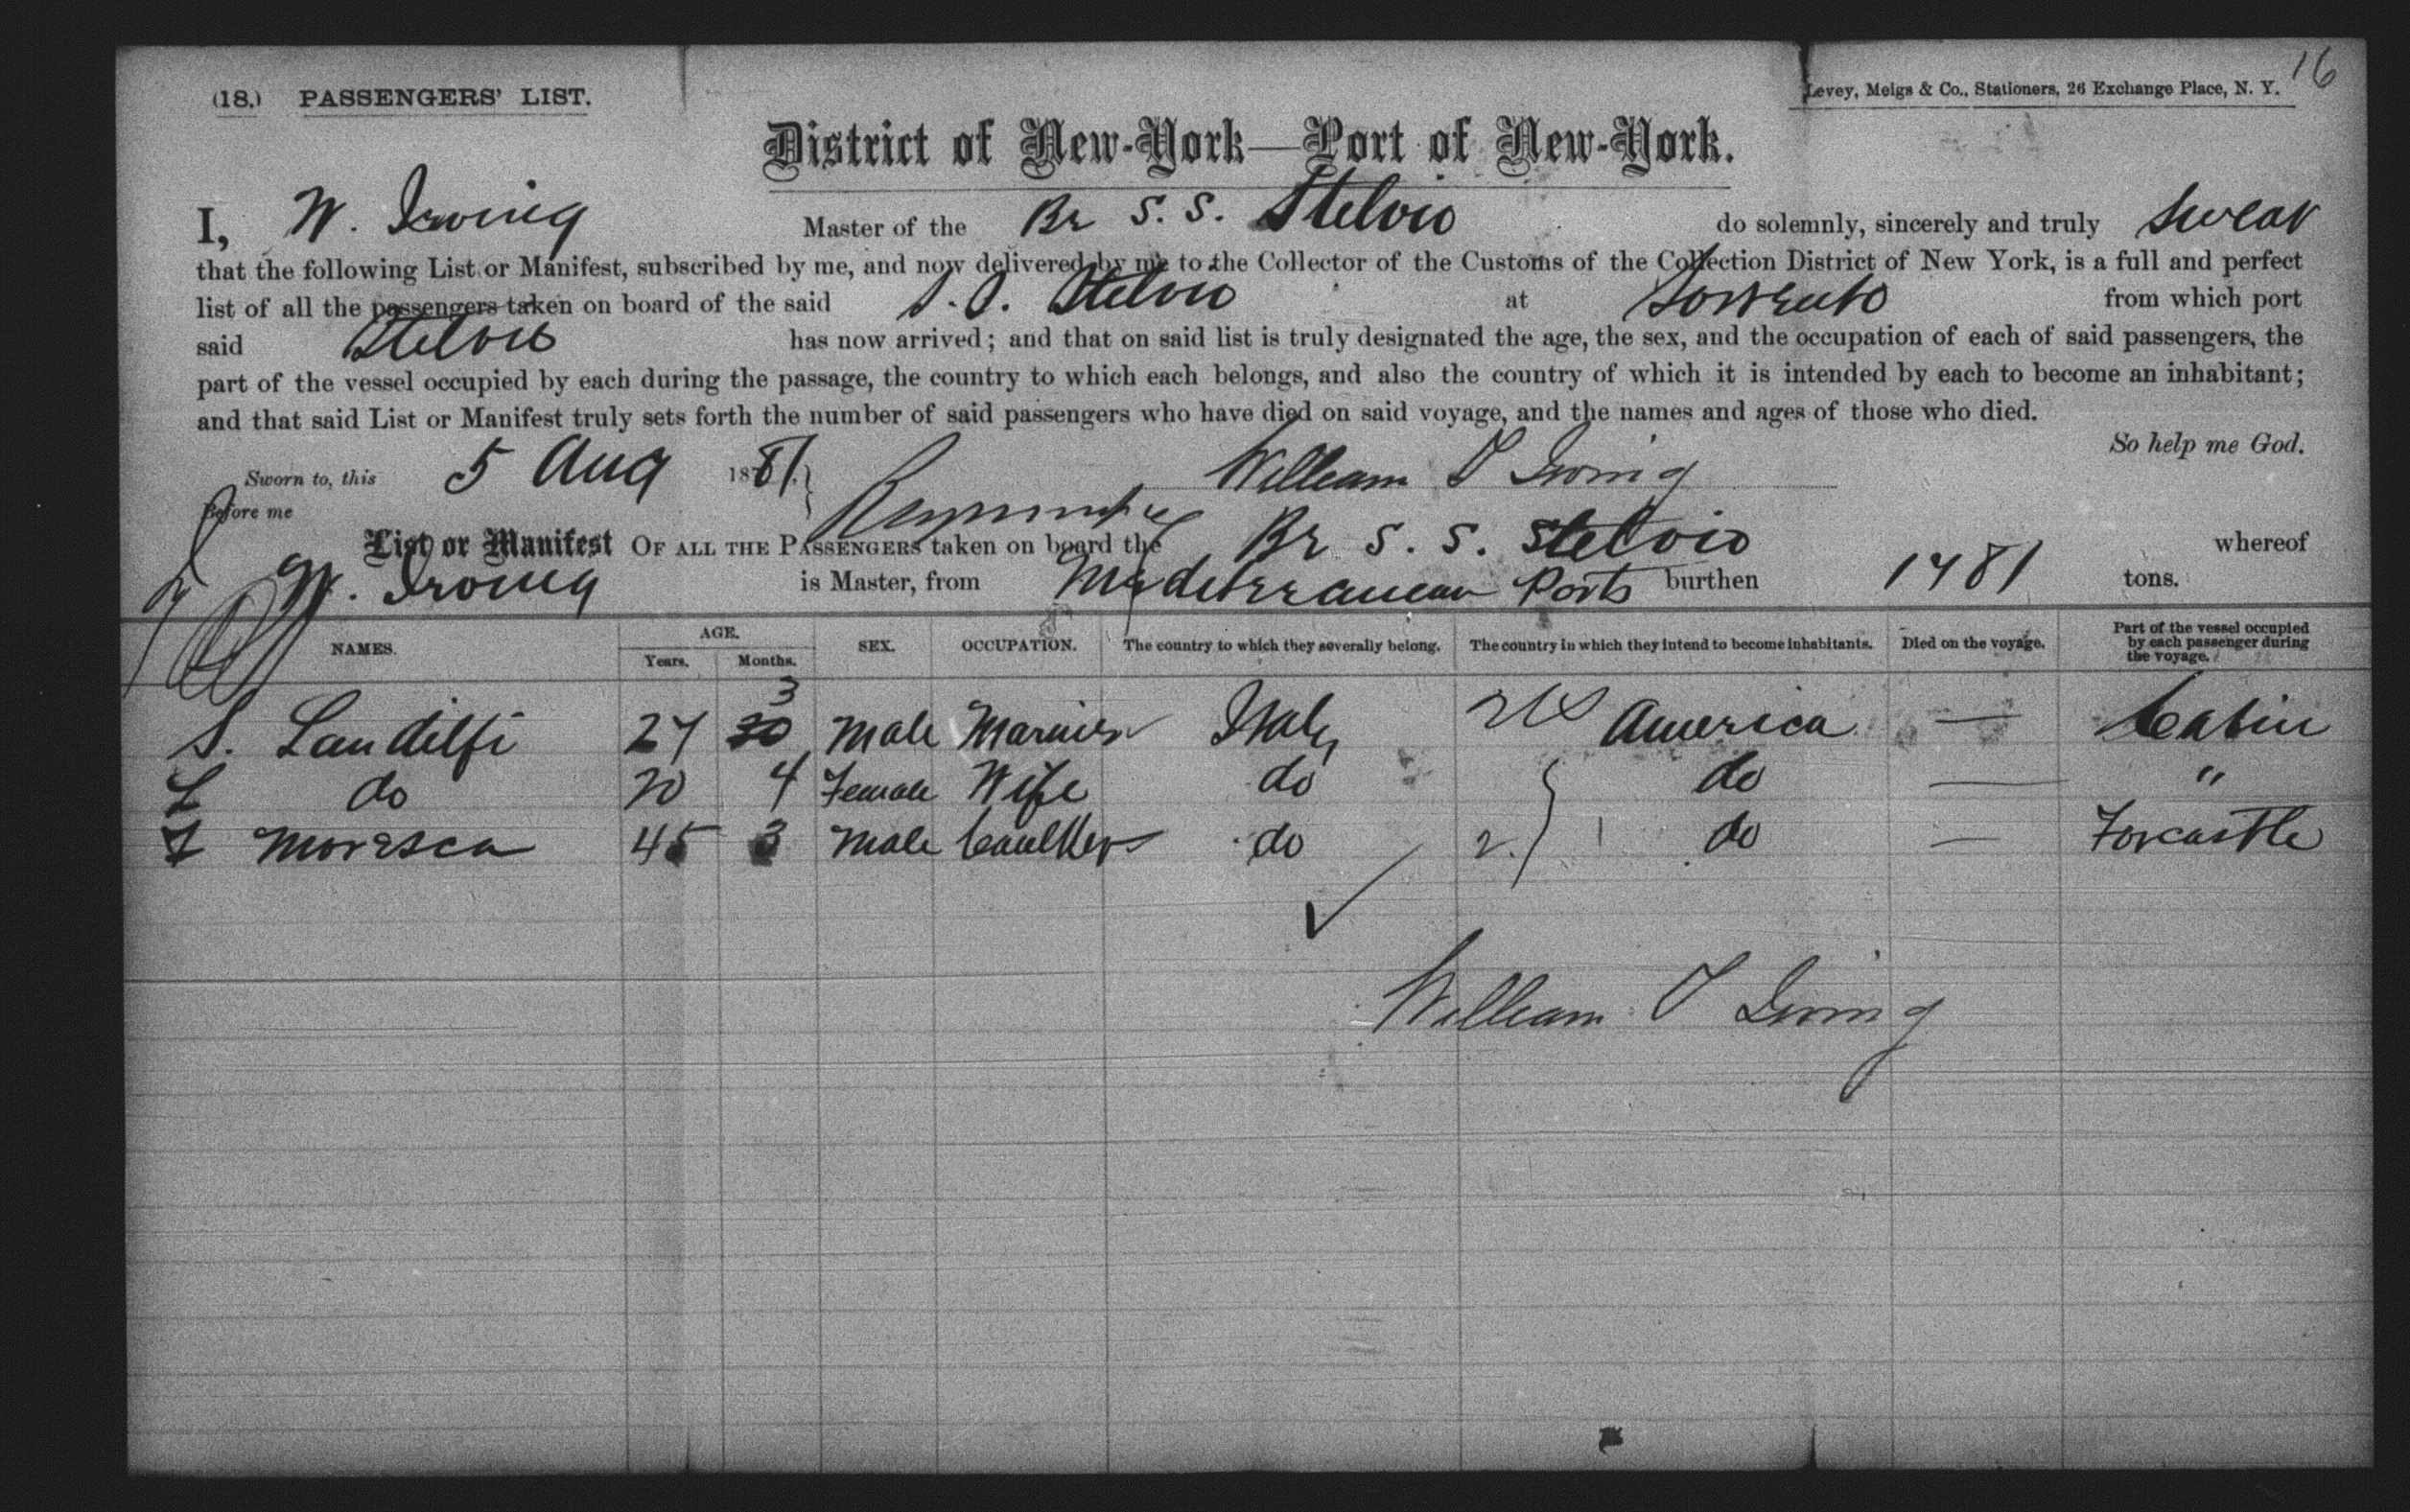 16
(18.) PASSENGERS' LIST.
Levey, Meigs & Co., Stationers, 26 Exchange Place, N. Y.
District of New-York—Port of New-York.
I, W. Irving Master of the Br S. S. Stelvio do solemnly, sincerely and truly swear
that the following List or Manifest, subscribed by me, and now delivered by me to the Collector of the Customs of the Collection District of New York, is a full and perfect
list of all the passengers taken on board of the said S. S. Stelvio at Sorrento from which port
said Stelvio has now arrived; and that on said list is truly designated the age, the sex, and the occupation of each of said passengers, the
part of the vessel occupied by each during the passage, the country to which each belongs, and also the country of which it is intended by each to become an inhabitant;
and that said List or Manifest truly sets forth the number of said passengers who have died on said voyage, and the names and ages of those who died.
So help me God.
Sworn to, this 5 Aug 1881. William Irving
Before me
List or Manifest OF ALL THE PASSENGERS taken on board the Br S. S. Stelvio whereof
W. Irving is Master, from Mediterranean Ports burthen 1481 tons.
NAMES. AGE. Years. Months. SEX. OCCUPATION. The country to which they severally belong. The country in which they intend to become inhabitants. Died on the voyage. Part of the vessel occupied by each passenger during the voyage.
S. Landilfi 27 3 Male Mariner Italy America — Cabin
do 20 4 Female Wife do do — "
Moresca 45 3 Male Caulker do 2. do — Forcastle
William Irving